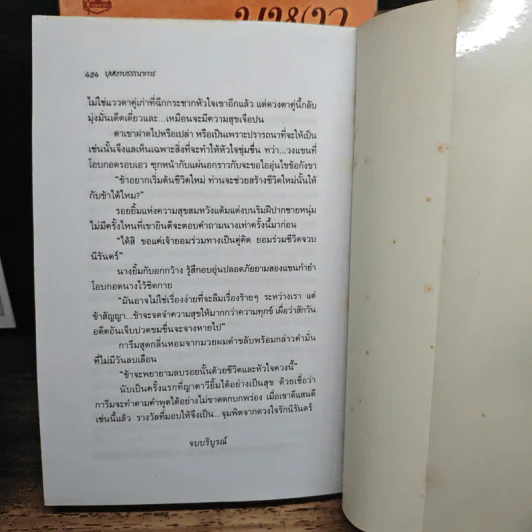 ๔๒๔ บุหงาบรรณาการ
ไม่ใช่แววตาคู่เก่าที่ฉีกกระชากหัวใจเขาอีกแล้ว แต่ดวงตาคู่นี้กลับ
มุ่งมั่นเด็ดเดี่ยวและ...เหมือนจะมีความสุขเจือปน
ตาเขาฝาดไปหรือเปล่า หรือเป็นเพราะปรารถนาที่จะให้เป็น
เช่นนั้นจึงแลเห็นเฉพาะสิ่งที่จะทำให้หัวใจชุ่มชื่น ทว่า...วงแขนที่
โอบกอดรอบเอว ซุกหน้ากับแผ่นอกราวกับจะขอไออุ่นไขข้อกังขา
“ข้าอยากเริ่มต้นชีวิตใหม่ ท่านจะช่วยสร้างชีวิตใหม่นั้นให้
กับข้าได้ไหม?”
รอยยิ้มแห่งความสุขสมหวังแต้มแต่งบนริมฝีปากชายหนุ่ม
ไม่มีครั้งไหนที่เขายินดีจะตอบคำถามนางเท่าครั้งนี้มาก่อน
“ได้สิ ขอแค่เจ้ายอมร่วมทางเป็นคู่คิด ยอมร่วมชีวิตจวบ
นิรันดร์”
นางยิ้มกับอกกว้าง รู้สึกอบอุ่นปลอดภัยยามสองแขนกำยำ
โอบกอดนางไว้ชิดกาย
“มันอาจไม่ใช่เรื่องง่ายที่จะลืมเรื่องร้ายๆ ระหว่างเรา แต่
ข้าสัญญา...ข้าจะจดจำความสุขให้มากกว่าความทุกข์ เผื่อว่าสักวัน
อดีตอันเจ็บปวดขมขื่นจะจางหายไป”
การีมสูดกลิ่นหอมจากมวยผมดำขลับพร้อมกล่าวคำมั่น
ที่ไม่มีวันลบเลือน
“ข้าจะพยายามลบรอยนั้นด้วยชีวิตและหัวใจดวงนี้”
นับเป็นครั้งแรกที่ญาดาวียิ้มได้อย่างเป็นสุข ด้วยเชื่อว่า
การีมจะทำตามคำพูดได้อย่างไม่ขาดตกบกพร่อง เมื่อเขาดีแสนดี
เช่นนี้แล้ว รางวัลที่มอบให้จึงเป็น...จุมพิตจากดวงใจรักนิรันดร์
จบบริบูรณ์